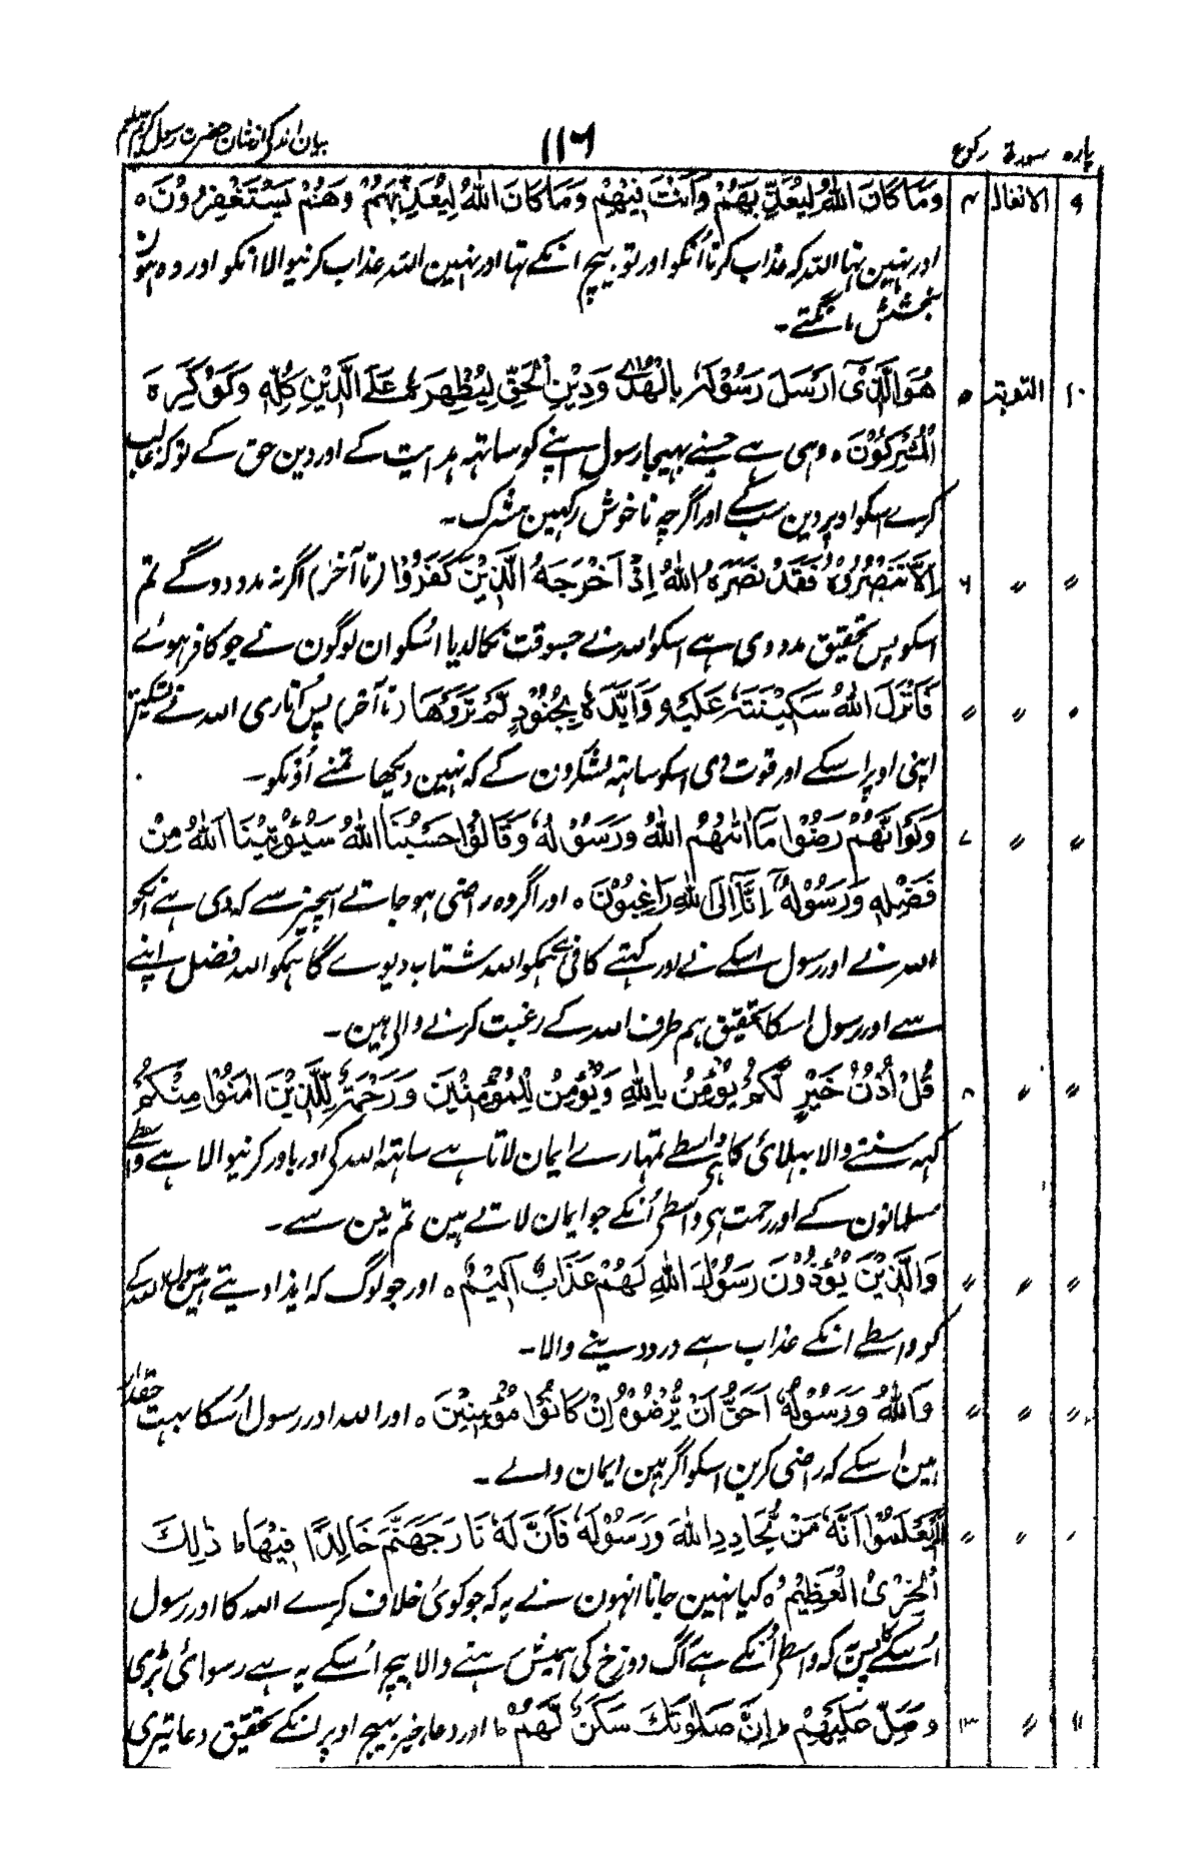 پارہ سورۃ رکوع ۱۱۶ بیان اندکی از شان حضرت رسول کریم صلعم
۹ الانفال ۴ وَمَا كَانَ اللهُ لِيُعَذِّبَهُمْ وَاَنْتَ فِيْهِمْ وَمَا كَانَ اللهُ لِيُعَذِّبَهُمْ وَهُمْ يَسْتَغْفِرُوْنَ ہ
اور نہین تہا اللہ کہ عذاب کرتا اُنکو اور تو بیچ انکے تہا اور نہین اللہ عذاب کرنیوالا انکو اور وہ ہون
بخشش مانگتے۔
۱۰ التوبہ ۵ هُوَ الَّذِىْٓ اَرْسَلَ رَسُوْلَهٗ بِالْهُدٰى وَدِيْنِ الْحَقِّ لِيُظْهِرَهٗ عَلَى الدِّيْنِ كُلِّهٖ وَلَوْ كَرِهَ
الْمُشْرِكُوْنَ ہ وہی ہے جسنے بہیجا رسول اپنے کو ساتہہ ہدایت کے اور دین حق کے توکہ غالب
کرے اسکو اوپر دین سب کے اور اگرچہ ناخوش رکہین مشرک۔
〃 〃 ۶ اِلَّا تَنْصُرُوْهُ فَقَدْ نَصَرَهُ اللهُ اِذْ اَخْرَجَهُ الَّذِيْنَ كَفَرُوْا (تا آخر) اگر نہ مدد دوگے تم
اسکو پس تحقیق مدد دی ہے اسکو اللہ نے جسوقت نکالدیا اُسکو ان لوگون نے جو کافر ہوئے
〃 〃 〃 فَاَنْزَلَ اللهُ سَكِيْنَتَهٗ عَلَيْهِ وَاَيَّدَهٗ بِجُنُوْدٍ لَّمْ تَرَوْهَا (تا آخر) پس اُتاری اللہ نے تسکین
اپنی اوپر اسکے اور قوت دی اسکو ساتہہ لشکرون کے کہ نہین دیکھا تمنے اُونکو۔
〃 〃 ۷ وَلَوْ اَنَّهُمْ رَضُوْا مَآ اٰتٰىهُمُ اللهُ وَرَسُوْلُهٗ وَقَالُوْا حَسْبُنَا اللهُ سَيُؤْتِيْنَا اللهُ مِنْ
فَضْلِهٖ وَرَسُوْلُهٗٓ اِنَّآ اِلَى اللهِ رَاغِبُوْنَ ہ اور اگر وہ راضی ہو جاتے اسچیز سے کہ دی ہے انکو
اللہ نے اور رسول اسکے نے اور کہتے کافی ہے ہمکو اللہ شتاب دیوے گا ہمکو اللہ فضل اپنے
سے اور رسول اسکا تحقیق ہم طرف اللہ کے رغبت کرنے والی ہین۔
〃 〃 ۸ قُلْ اُذُنُ خَيْرٍ لَّكُمْ يُؤْمِنُ بِاللهِ وَيُؤْمِنُ لِلْمُؤْمِنِيْنَ وَرَحْمَةٌ لِّلَّذِيْنَ اٰمَنُوْا مِنْكُمْ
کہہ سننے والا بہلائی کا ہی واسطے تمہارے ایمان لاتا ہے ساتہہ اللہ کی اور باور کرنیوالا ہے واسطے
مسلمانون کے اور رحمت ہی واسطی اُنکے جو ایمان لاتے ہین تم مین سے۔
〃 〃 〃 وَالَّذِيْنَ يُؤْذُوْنَ رَسُوْلَ اللهِ لَهُمْ عَذَابٌ اَلِيْمٌ ہ اور جو لوگ کہ ایذا دیتے ہین رسول اللہ کے
کو واسطے انکے عذاب ہے درد دینے والا۔
〃 〃 〃 وَاللهُ وَرَسُوْلُهٗٓ اَحَقُّ اَنْ يُّرْضُوْهُ اِنْ كَانُوْا مُؤْمِنِيْنَ ہ اور اللہ اور رسول اُسکا بہت حقدار
ہین اسکے کہ راضی کرین اسکو اگر ہین ایمان والے۔
〃 〃 〃 اَلَمْ يَعْلَمُوْٓا اَنَّهٗ مَنْ يُّحَادِدِ اللهَ وَرَسُوْلَهٗ فَاَنَّ لَهٗ نَارَ جَهَنَّمَ خَالِدًا فِيْهَا ط ذٰلِكَ
الْخِزْىُ الْعَظِيْمُ ہ کیا نہین جانا انہون نے یہ کہ جو کوئی خلاف کرے اللہ کا اور رسول
اُسکے کا پس یہ کہ واسطی اُنکے ہے آگ دوزخ کی ہمیش رہنے والا بیچ اُسکے یہ ہے رسوائی بڑی
۱۱ 〃 ۱۳ وَصَلِّ عَلَيْهِمْ ط اِنَّ صَلٰوتَكَ سَكَنٌ لَّهُمْ ط اور دعا خیر بہیج اوپر انکے تحقیق دعا تیری